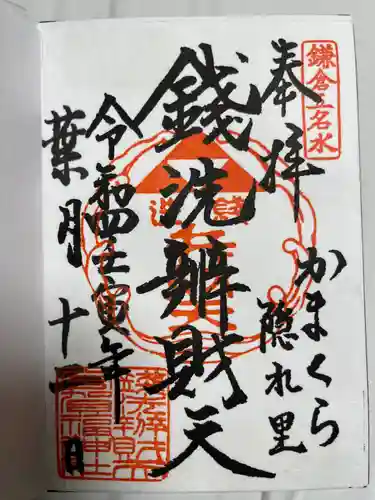 鎌倉五名水
奉拝
かまくら
隠れ里
銭洗
錢洗辨財天
令和四壬寅年
葉月十一日